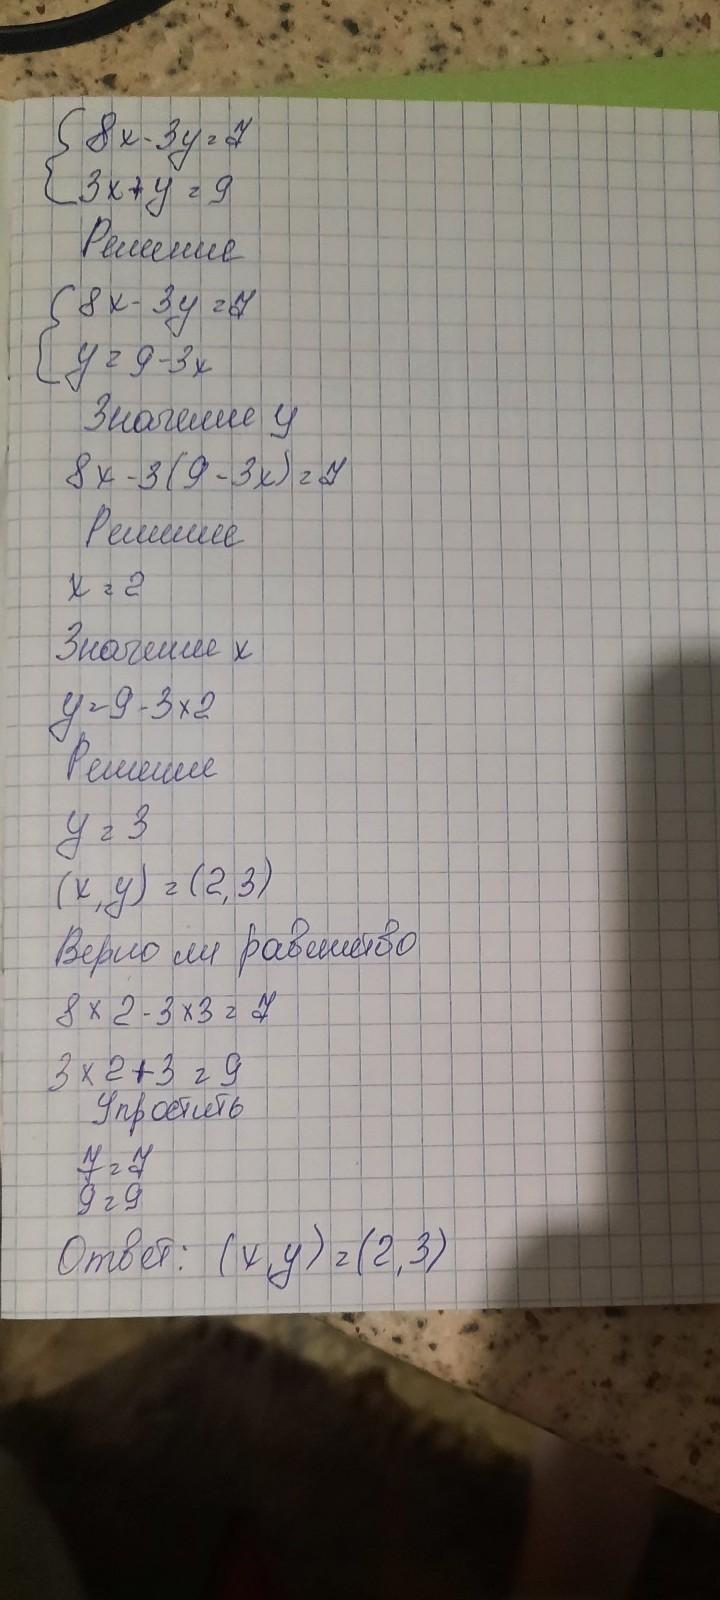 {8x-3y=7
{3x+y=9
Решение
{8x-3y=7
{y=9-3x
Значение y
8x-3(9-3x)=7
Решение
x=2
Значение x
y=9-3×2
Решение
y=3
(x,y)=(2,3)
Верно ли равенство
8×2-3×3=7
3×2+3=9
Упростить
7=7
9=9
Ответ: (x,y)=(2,3)